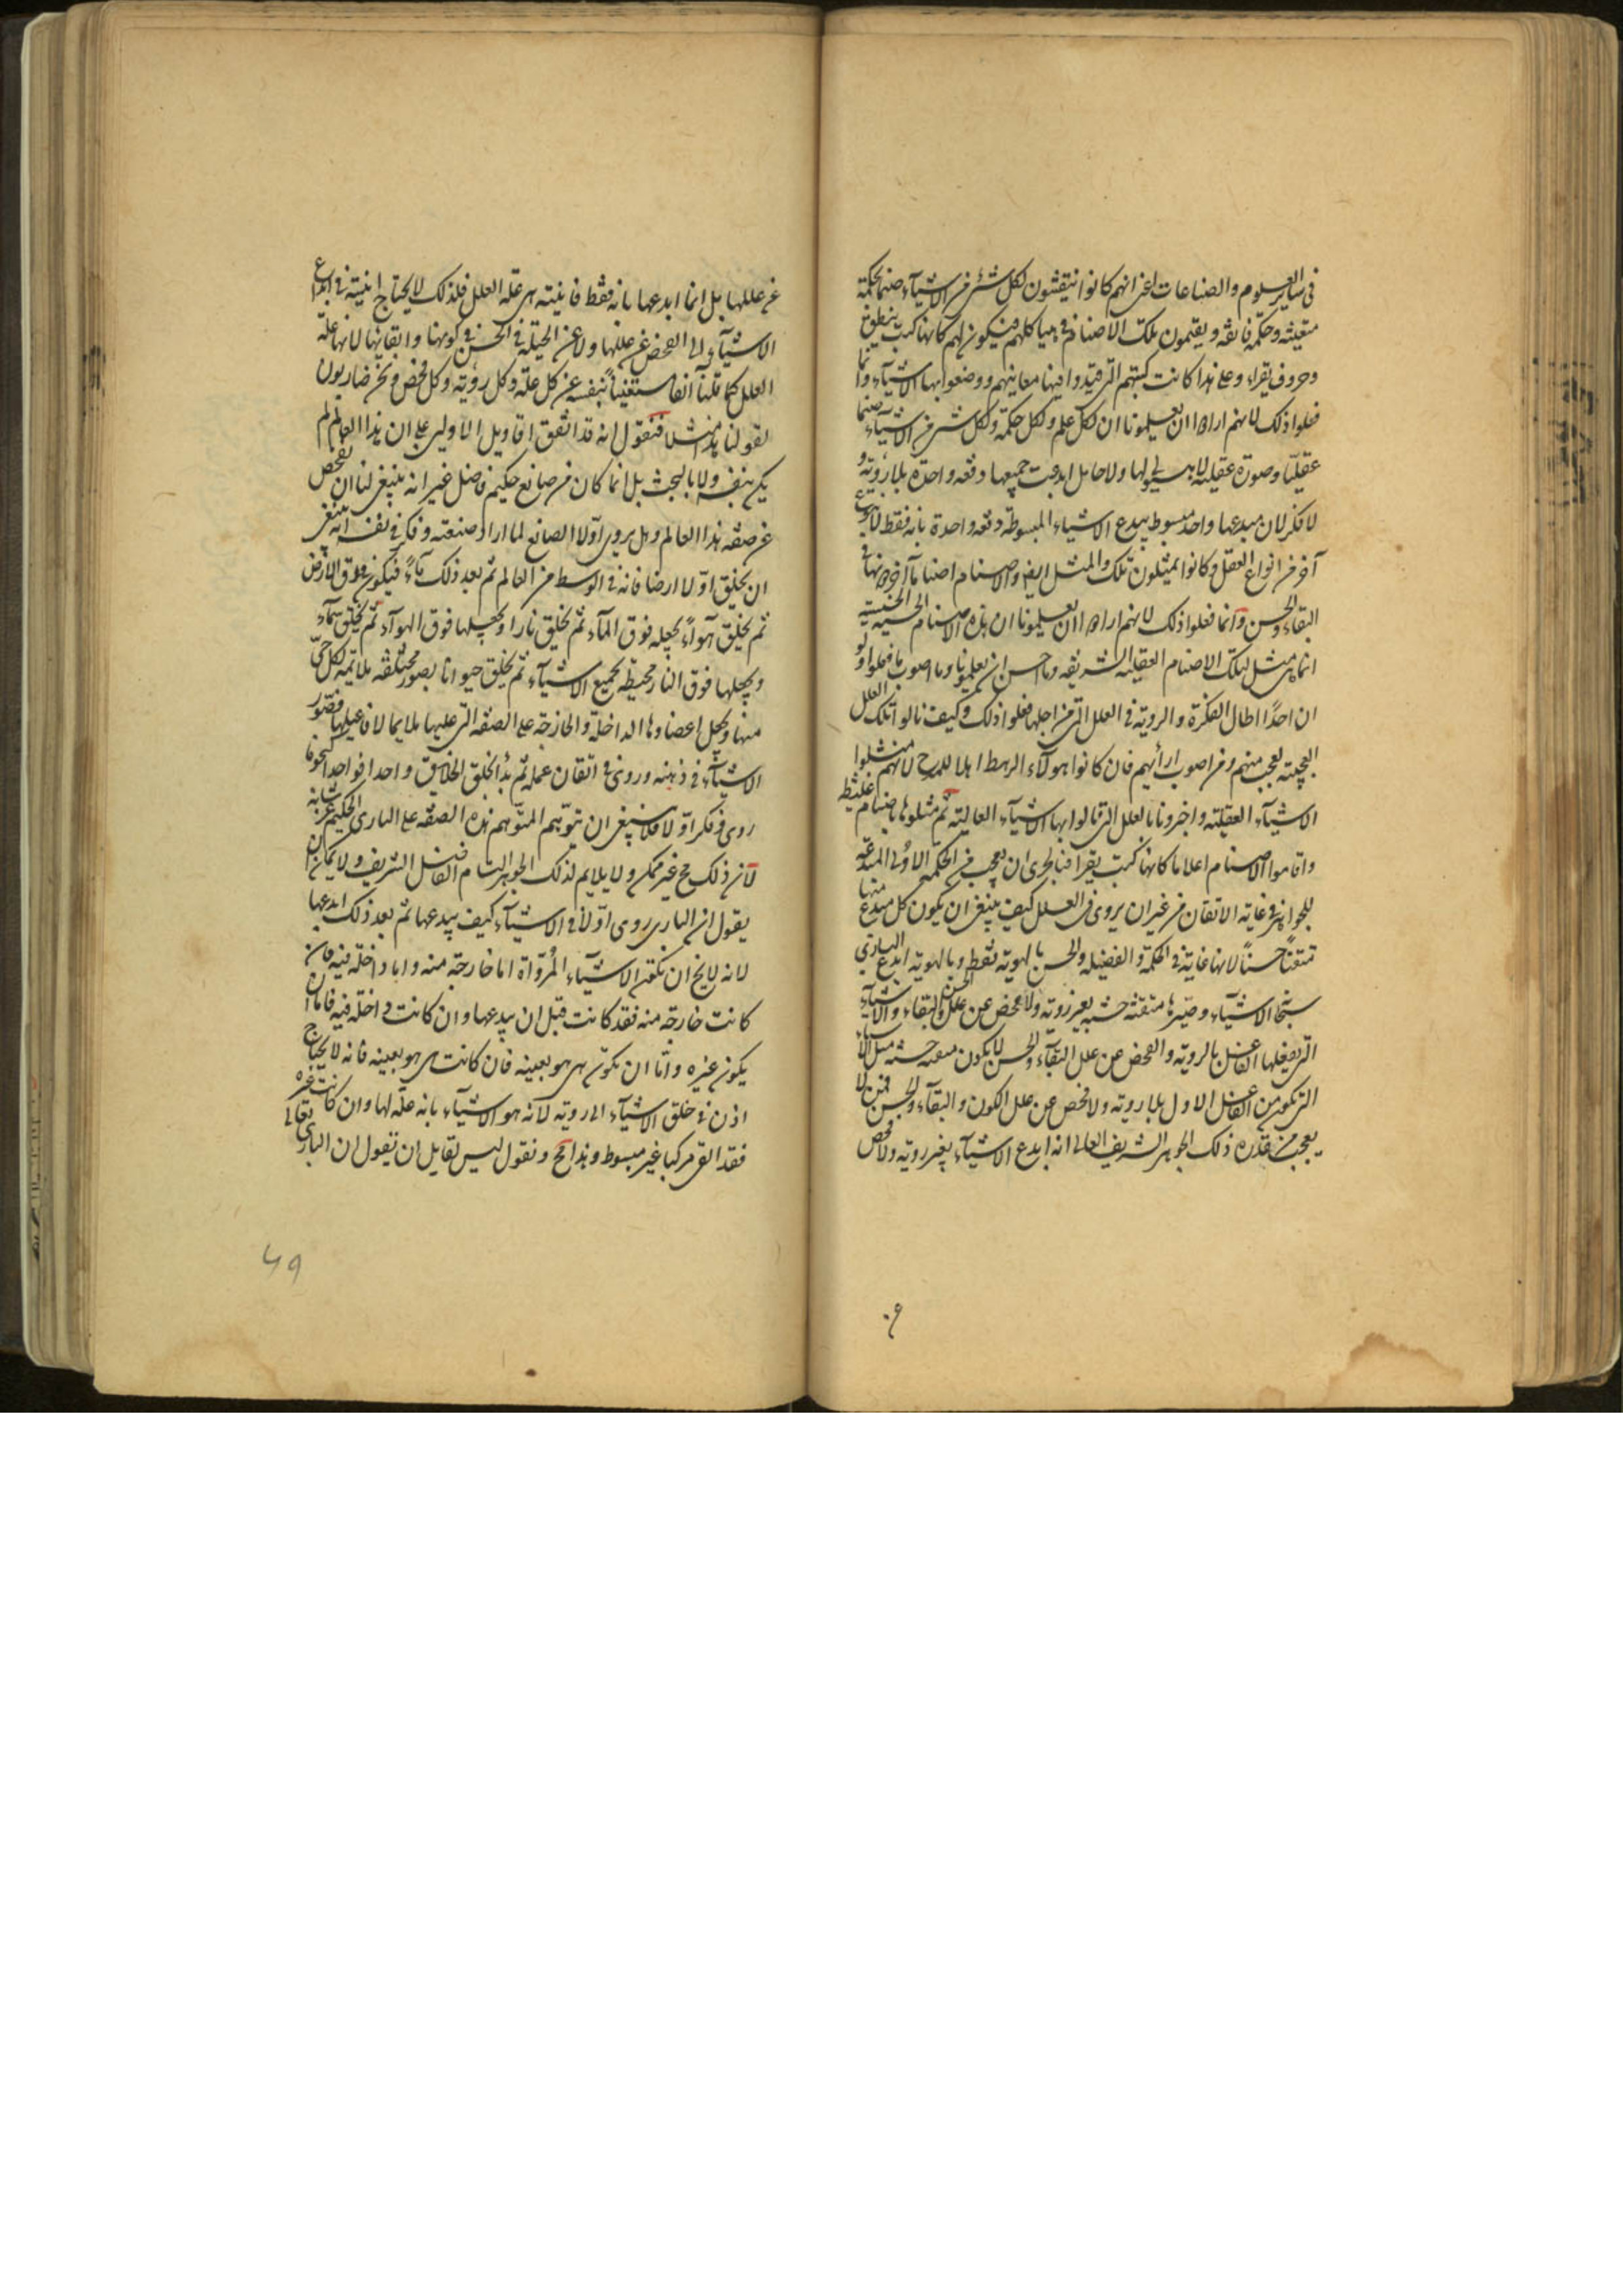 في ساير العلوم والصناعات اعنى انهم كانوا ينقشون لكل شئ من الاشياء صنما بحكمة
متقنة وحكمة فائقه ويقيمون تلك الاصنام في هياكلهم فيكون لهم كانها كتب ينطق
وحروف يقراء وعلى هذا كانت كتبهم التى قيدوا فيها معانيهم ووضعوا بها الاشياء وانما
فعلوا ذلك لانهم ارادوا ان يعلمونا ان لكل علم ولكل حكمة ولكل شئ من الاشياء صنما
عقليا وصورة عقلية لا هيولى لها ولا حامل ابدعت جميعها دفعة واحدة بلا روية و
لا فكر لان مبدعها واحد مبسوط يبدع الاشياء المبسوطة دفعة واحدة بانه فقط لا بنوع
آخر من انواع العقل وكانوا يمثلون تلك والمثل ايضا والاصنام اصناما اخر دونها في
البقاء والحسن وانما فعلوا ذلك لانهم ارادوا ان يعلمونا ان هذه الاصنام الحسية الخسيسة
انما هي مثل لتلك الاصنام العقلية الشريفه وما احسن ان يعلمونا وما اصوب ما فعلوا ولو
ان احدًا اطال الفكرة والروية في العلل التى من اجلها فعلوا ذلك وكيف نالوا تلك العلل
العجيبة لعجب منهم ومن اصوب ارأيهم فان كانوا هولآء الرهط اهلا للمدح لانهم مثلوا
الاشيآء العقلية واخبرونا بالعلل التى نالوا بها الاشيآء العالية ثم مثلوها باصنام غليظة
واقاموا الاصنام اعلاما كانها كتب يقرا فبالحرى ان يعجب من الحكمة الاولى المبدعة
للجواهر في غاية الاتقان من غير ان يروى في العلل كيف ينبغي ان يكون كل مبدع منها
متقنًا حسنًا لانها غاية في الحكمة والفضيلة والحسن بالهوية فقط وبالهوية ابدع البارى
سبحانه الاشياء وصيرها متقنة حسنة بغير روية ولا فحص عن علل الحسن والبقاء والاشياء
التى يفعلها الفاعل بالروية والفحص عن علل البقآء والحسن لا يكون متقنة حسنة مثل الاشياء
التى تكون من الفاعل الاول بلا روية ولا فحص عن علل الكون والبقآء والحسن فمن لا
يعجب من قدرة ذلك الجوهر الشريف العالى انه ابدع الاشيآء بغير روية ولا فحص
عن عللها بل انما ابدعها بانه فقط فانيته هى علة العلل فلذلك لا يحتاج انيته في ابداع
الاشيآء الى الفحص عن عللها ولا عن الحيلة في الحسن في كونها واتقانها لانها علة
العلل كما قلنا آنفا مستغنيا بنفسه عن كل علة وكل روية وكل فحص ونحن ضاربون
لقولنا هذا مثلا فنقول انه قد اتفق اقاويل الاولين على ان هذا العالم لم
يكن بنفسه ولا بالبحث بل انما كان من صانع حكيم فاضل غير انه ينبغي لنا ان نفحص
عن صفة هذا العالم وهل يروى اولا الصانع لما اراد صنعته وفكر في نفسه انه ينبغي
ان يخلق اولا ارضا فانه في الوسط من العالم ثم بعد ذلك مآءً فيكون فوق الارض
ثم يخلق هوآءً يجعله فوق المآء ثم يخلق نارا ويجعلها فوق الهوآء ثم يخلق سمآء
ويجعلها فوق النار محيطة بجميع الاشيآء ثم يخلق حيوانا بصور مختلفة ملائمة لكل حى
منها ويجعل اعضاوها الداخلة والخارجة على الصفة التى عليها ملايما لافاعيلها فصور
الاشيآء في ذهنه وروى في اتقان عمله ثم بدأ لخلق الخلايق واحدا فواحدا كنحو ما
روى وفكر اولا فلا ينبغي ان يتوهم المتوهم هذه الصفة على البارى الحكيم عز شانه
لان ذلك مح غير ممكن ولا يلايم لذلك الجوهر التام الفاضل الشريف ولا يمكن ان
يقول ان البارى روى اولا في الاشيآء كيف يبدعها ثم بعد ذلك ابدعها
لانه لا يخ ان تكون الاشيآء المروّاة اما خارجة منه واما داخلة فيه فان
كانت خارجة منه فقد كانت قبل ان يبدعها وان كانت داخلة فيه فاما ان
يكون غيره واما ان تكون هى هو بعينه فان كانت هى هو بعينه فانه لا يحتاج
اذن في خلق الاشيآء الى روية لانه هو الاشيآء بانه علة لها وان كانت غيره
فقد القى مركبا غير مبسوط وهذا مح ونقول ليس لقايل ان يقول ان البارى تعالى
٤٩